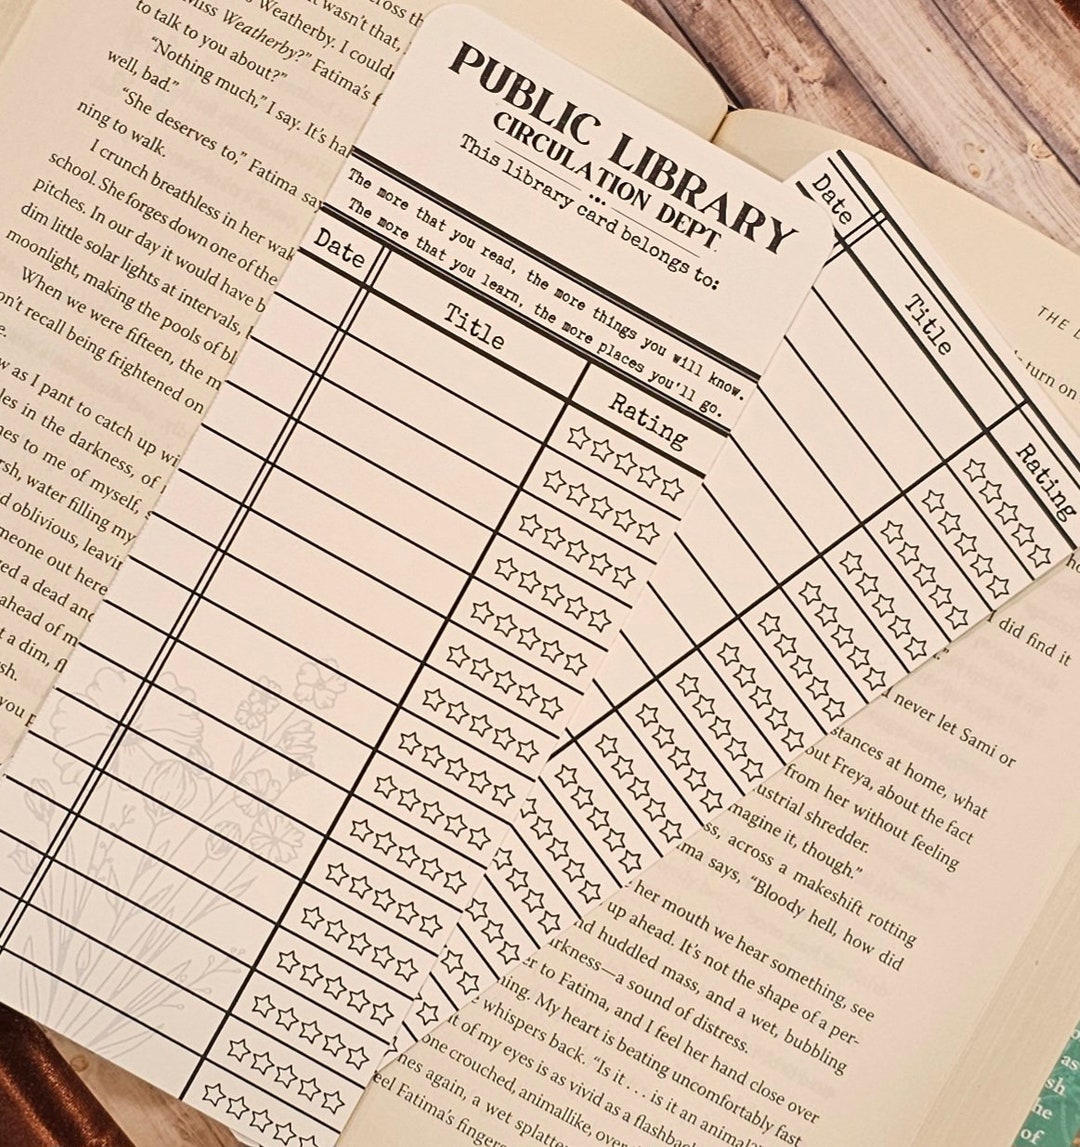 PUBLIC LIBRARY
CIRCULATION DEPT.
This library card belongs to:
The more that you read, the more things you will know.
The more that you learn, the more places you'll go.
Date Title Rating
Date Title Rating
Weatherby. I
wasn't that,
Miss Weatherby?" Fatima's
to talk to you about?"
"Nothing much," I say. It's
well, bad."
"She deserves to," Fatima
ning to walk.
I crunch breathless in her
school. She forges down one of the
pitches. In our day it would have
dim little solar lights at intervals,
moonlight, making the pools of
When we were fifteen, the
recall being frightened on
as I pant to catch up
in the darkness, of
to me of myself,
water filling my
oblivious,
out here
a dead
ahead of
a dim,
you
THE
turn on
did find it
never let Sami or
at home, what
out Freya, about the fact
from her without feeling
shredder.
imagine it, though."
across a makeshift rotting
says, "Bloody hell, how did
her mouth we hear something, see
up ahead. It's not the shape of a per-
huddled mass, and a wet, bubbling
a sound of distress.
to Fatima, and I feel her hand close over
My heart is beating uncomfortably fast
whispers back. "Is it . . . is it an
of my eyes is as vivid as a
one crouched, animallike,
again, a wet
Fatima's
as
of